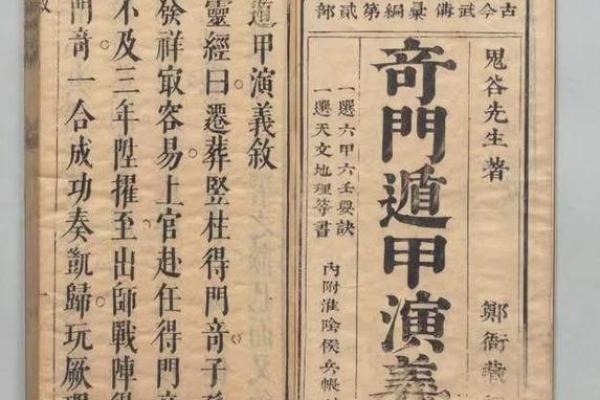 古今武備彙編第貳部
鬼谷先生著 鄭衙藏
奇門遁甲演義
一選六甲六壬要訣
一選天文地理等書
內附淮陰侯兵帳
遁甲演義敘
靈經曰遷葬竪柱得門奇子孫
發祥㝡容易上官赴任得門奇
不及三年陞擢至出師戰陣得
門奇一合成功奏凱歸玩厥